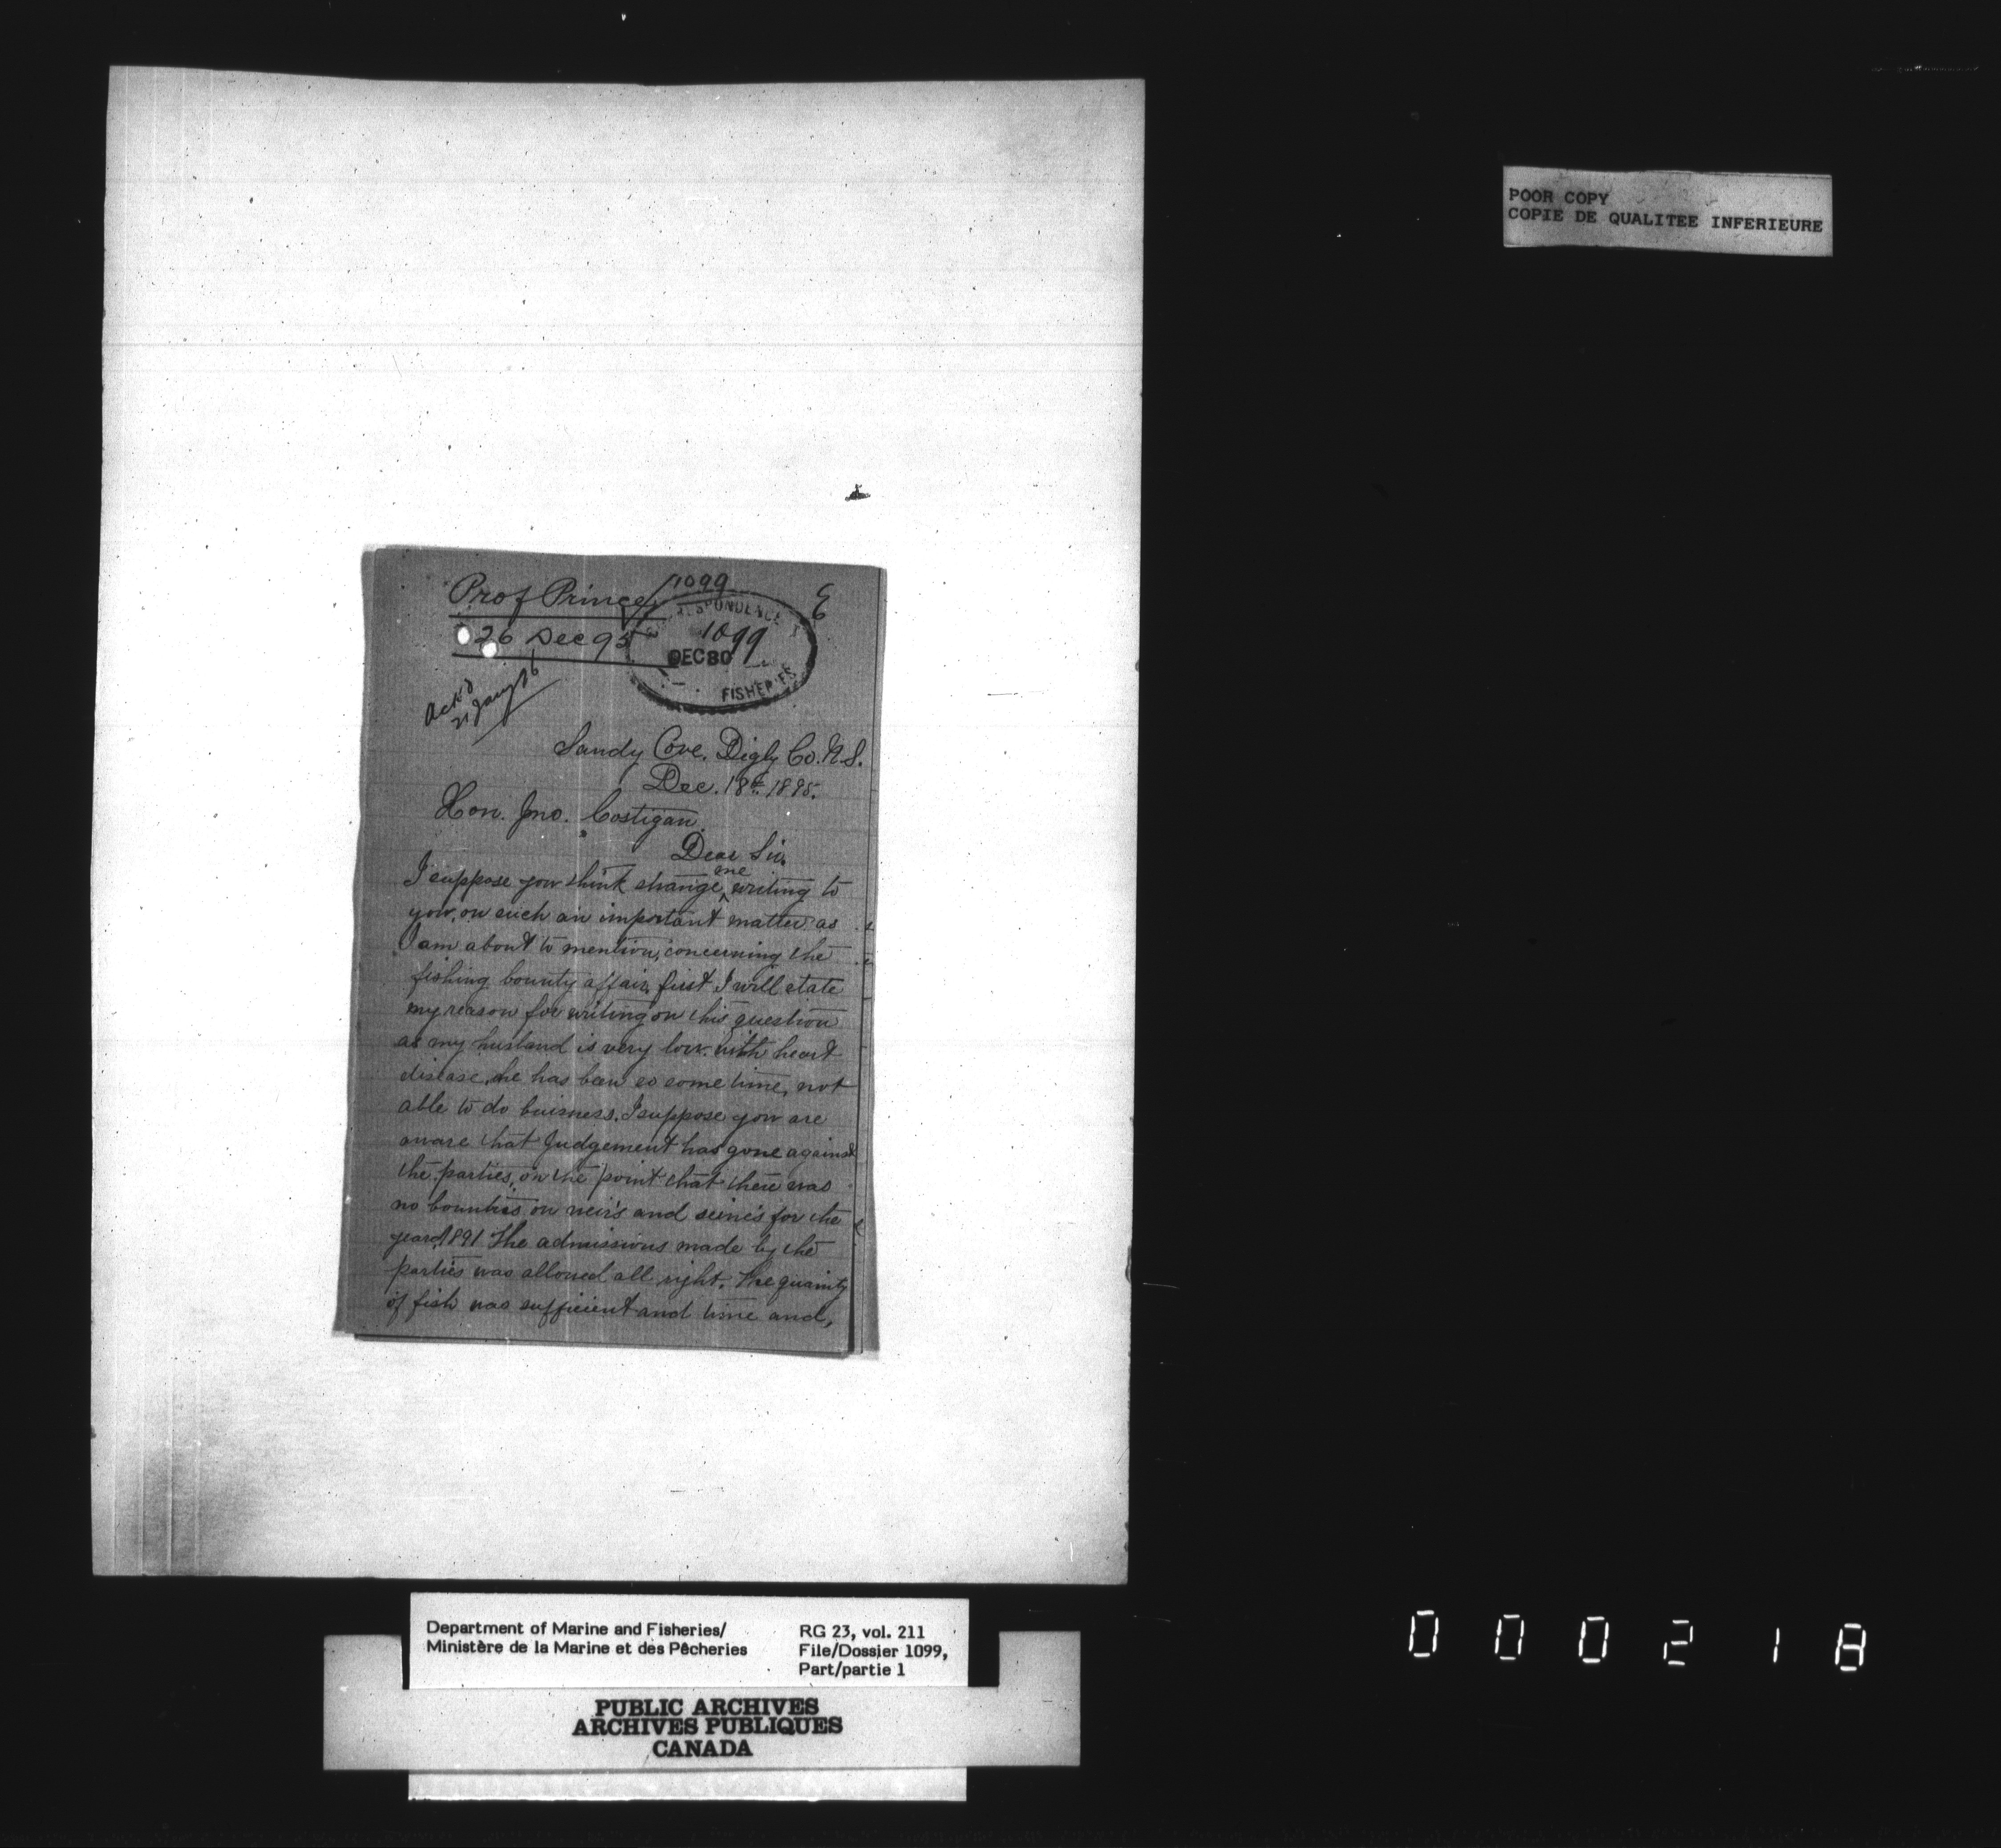 POOR COPY
COPIE DE QUALITEE INFERIEURE
Prof Prince
1099
E
26 Dec 95
CORRESPONDENCE
1099
DEC 30
FISHERIES
Ack'd
21 Jany 96
Sandy Cove, Digby Co. N.S.
Dec. 18th 1895.
Hon. Jno. Costigan.
Dear Sir.
I suppose you think strange me writing to
you, on such an important matter as
I am about to mention, concerning the
fishing bounty affair, first I will state
my reason for writing on this question
as my husband is very low with heart
disease, he has been so some time, not
able to do buisness. I suppose you are
aware that Judgement has gone against
the parties, on the point that there was
no bounties on weirs and seines for the
year 1891 The admissions made by the
parties was allowed all right. The quanity
of fish was sufficient and time and,
Department of Marine and Fisheries/
Ministère de la Marine et des Pêcheries
RG 23, vol. 211
File/Dossier 1099,
Part/partie 1
PUBLIC ARCHIVES
ARCHIVES PUBLIQUES
CANADA
000218